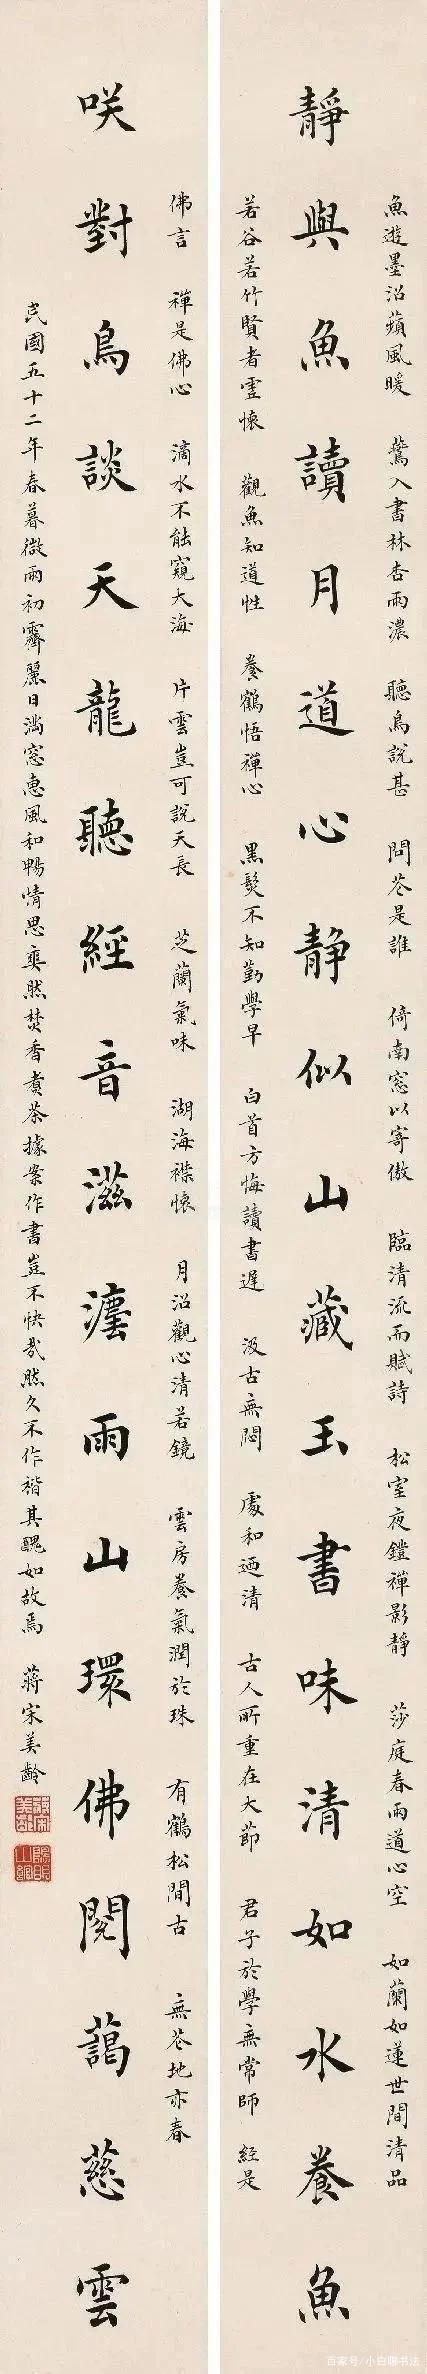 魚遊墨沼蘋風暖 鶯入書林杏雨濃 聽鳥說甚 問花是誰 倚南窓以寄傲 臨清流而賦詩 松室夜鐙禪影靜 莎庭春雨道心空 如蘭如蓮世間清品
靜與魚讀月道心靜似山藏玉書味清如水養魚
若谷若竹賢者虛懷 觀魚知道性 養鶴悟禪心 黑髮不知勤學早 白首方悔讀書遲 汲古無悶 處和迺清 古人所重在大節 君子於學無常師 經是
佛言 禪是佛心 滴水不能窺大海 片雲豈可說天長 芝蘭氣味 湖海襟懷 月沼觀心清若鏡 雲房養氣潤於珠 有鶴松間古 無花地亦春
咲對鳥談天龍聽經音滋灋雨山環佛閣藹慈雲
民國五十二年春暮微雨初霽麗日滿窓惠風和暢情思奭然焚香煑茶據案作書豈不快哉然久不作楷其醜如故焉 蔣宋美齡
百家号/小白聊书法